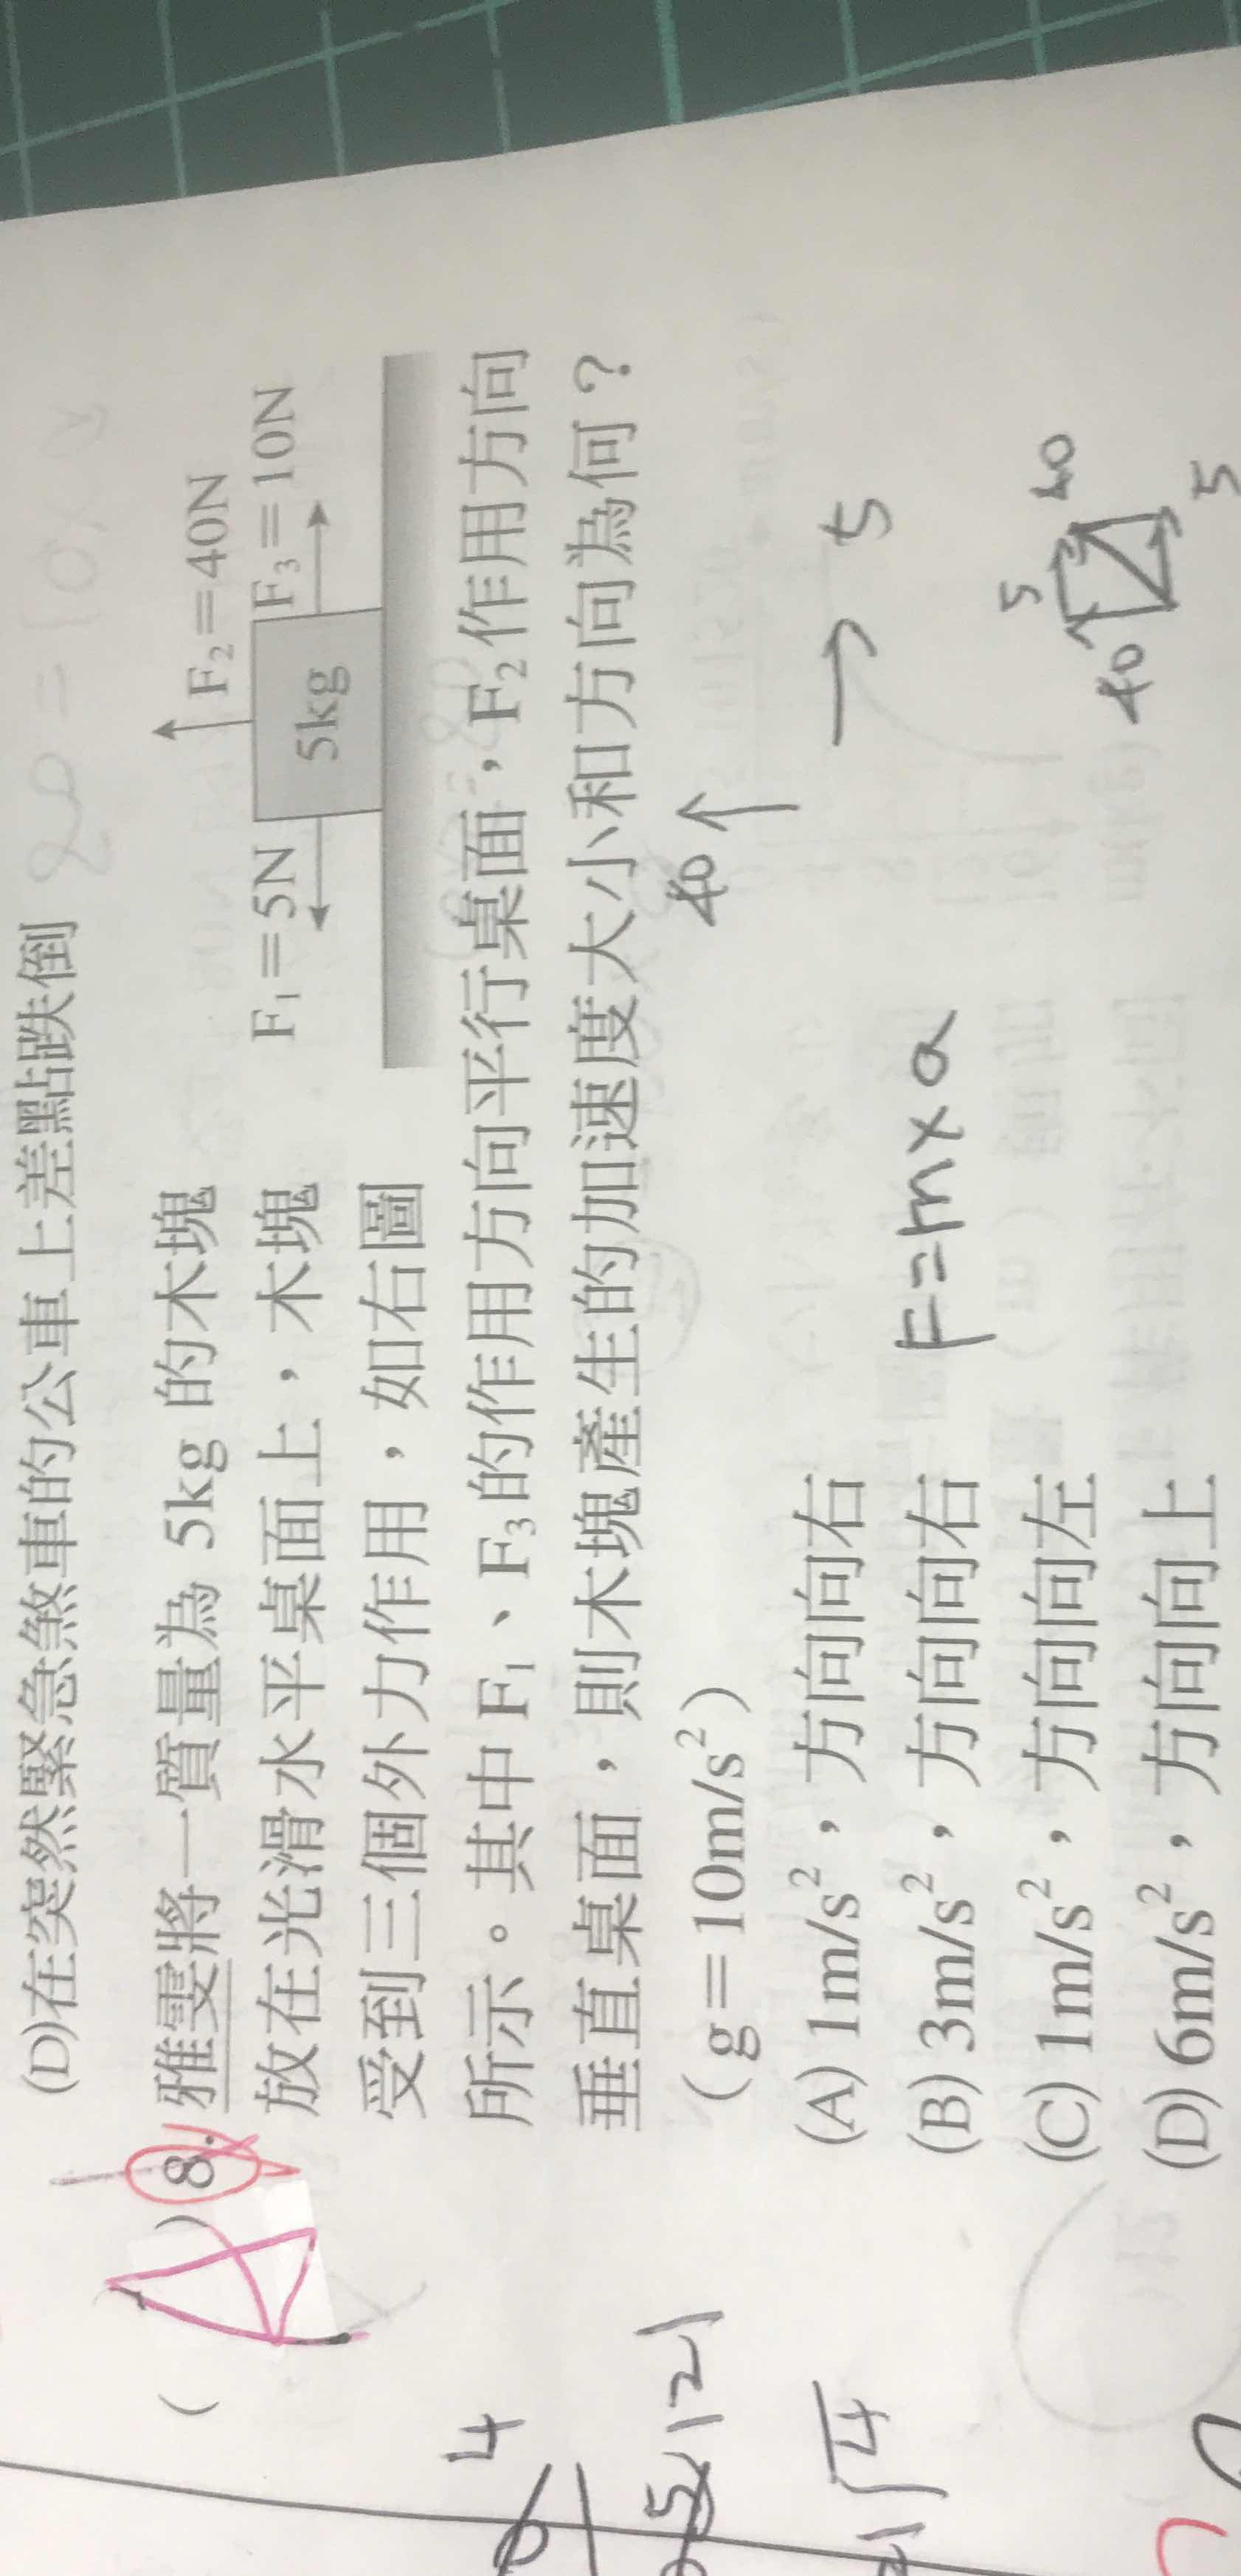 (D)在突然緊急煞車的公車上差點跌倒
( A ) 8. 雅雯將一質量為 5kg 的木塊
放在光滑水平桌面上，木塊
受到三個外力作用，如右圖
所示。其中 F₁、F₃ 的作用方向平行桌面，F₂ 作用方向
垂直桌面，則木塊產生的加速度大小和方向為何？
（g＝10m/s²）
F₂＝40N
F₁＝5N
F₃＝10N
5kg
(A) 1m/s²，方向向右
(B) 3m/s²，方向向右
(C) 1m/s²，方向向左
(D) 6m/s²，方向向上
F=m×a
40 ↑
→ 5
5
40
40
5
4
121
√4